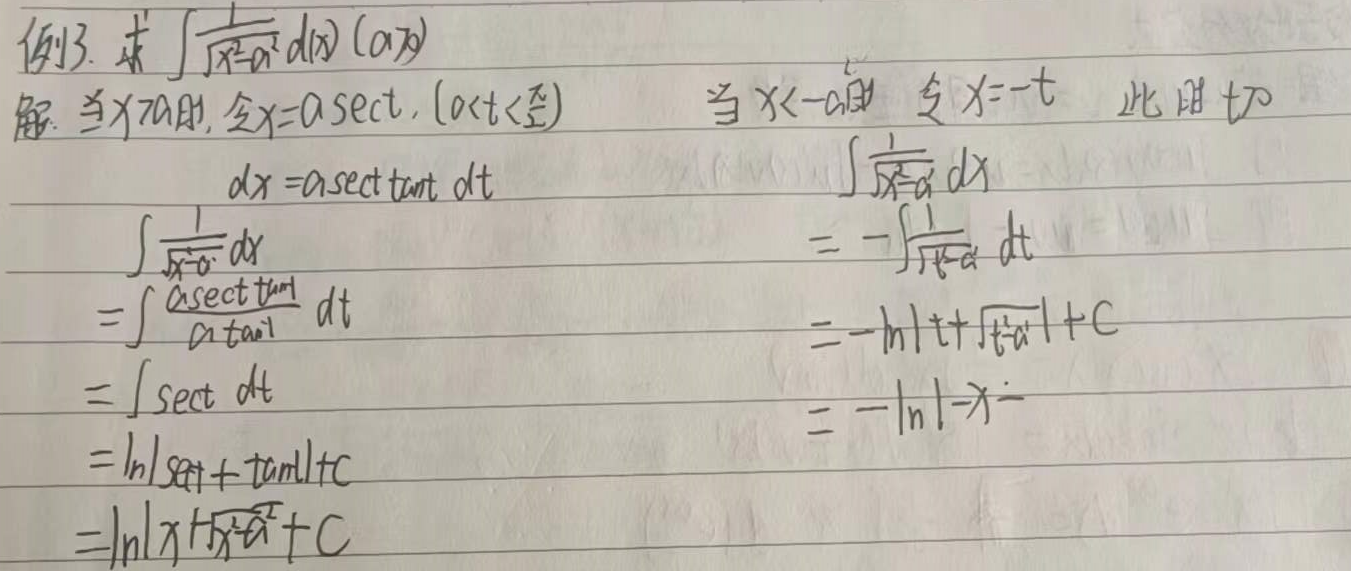 例3. 求 ∫ 1/√(x²-a²) d(x) (a>0)
解. 当x>a时, 令x=a sect, (0<t<π/2)
dx = a sect tant dt
∫ 1/√(x²-a²) dx
= ∫ (a sect tant)/(a tant) dt
= ∫ sect dt
= ln|sect + tant|+C
= ln|x+√(x²-a²) + C
当 x<-a时 令 x=-t 此时 t>0
∫ 1/√(x²-a²) dx
= -∫ 1/√(t²-a²) dt
= -ln|t+√(t²-a²)|+C
= -ln|-x-